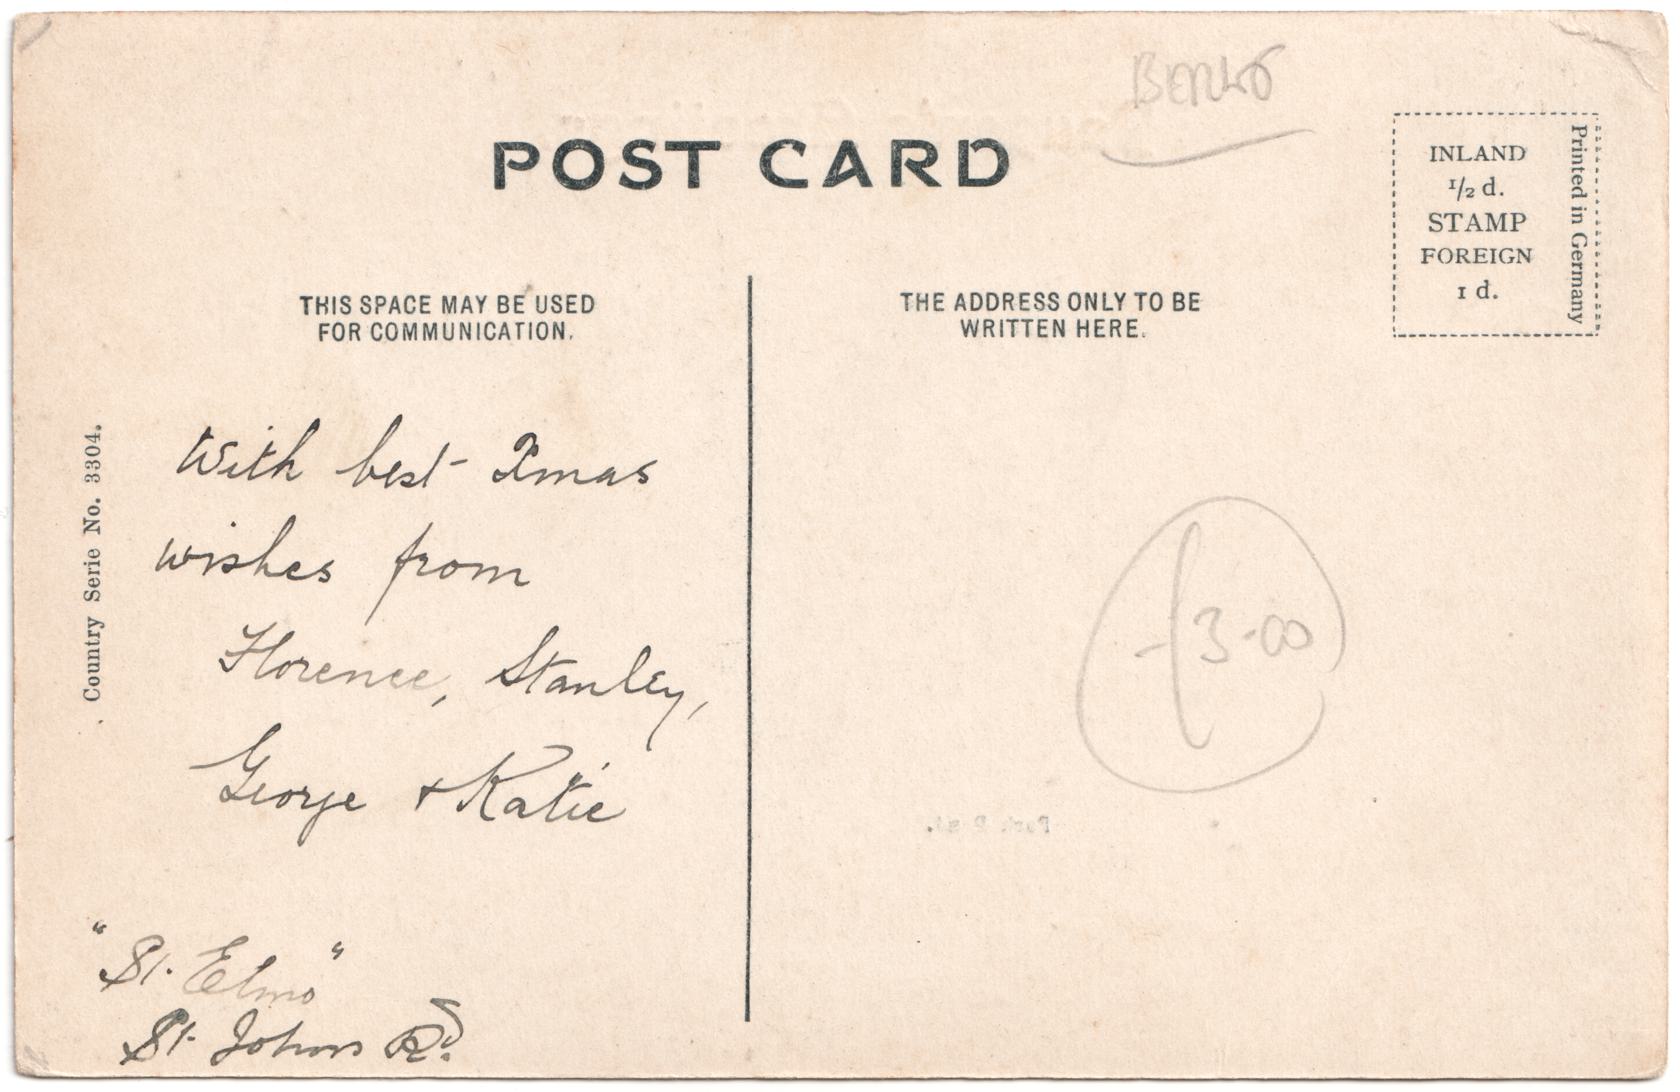 POST CARD
INLAND
1/2 d.
STAMP
FOREIGN
1 d.
Printed in Germany
THIS SPACE MAY BE USED
FOR COMMUNICATION.
THE ADDRESS ONLY TO BE
WRITTEN HERE.
Country Serie No. 3304.
With best Xmas
wishes from
Florence, Stanley,
George + Katie
£3-00
"St. Elmo"
St. Johns Rd.